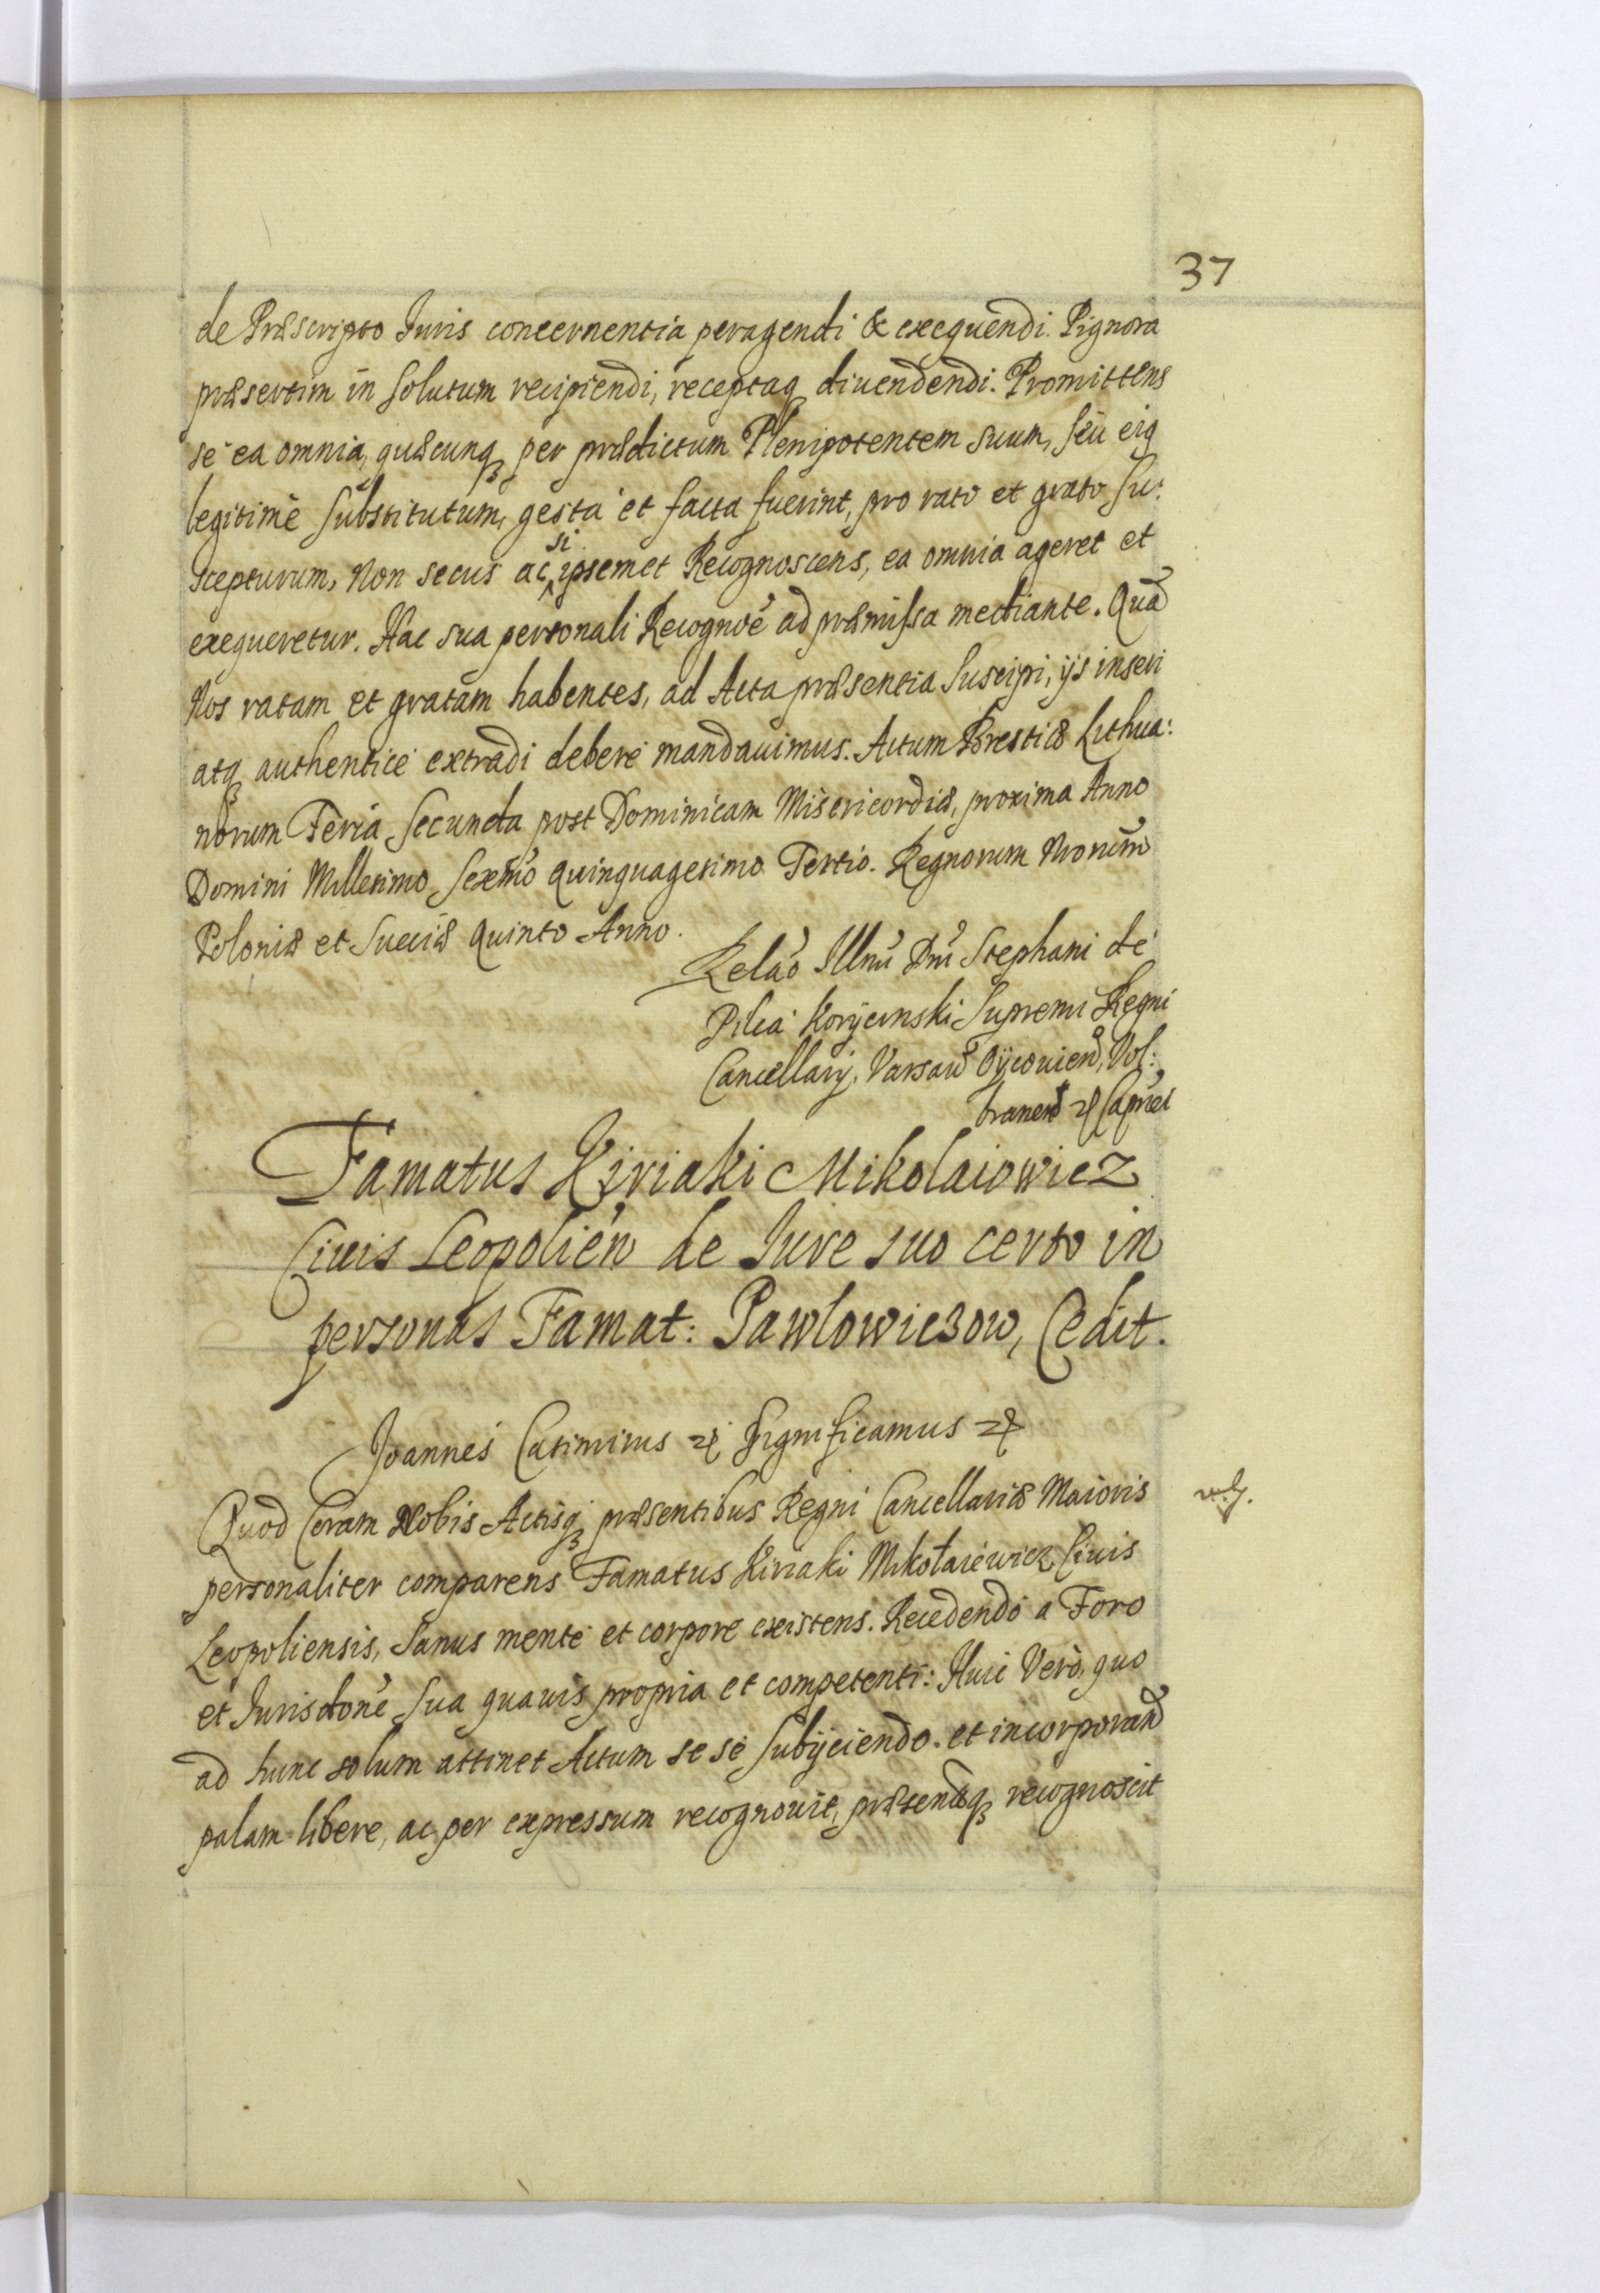 37
de Præscripto Iuris concernentia peragendi & exequendi. Pignora
præsertim in solutum recipiendi, receptaq diuendendi. Promittens
se ea omnia, quæcunq per prædictum Plenipotentem suum, seu eiq
legitimè substitutum, gesta et facta fuerint, pro rato et grato su:
scepturum, Non secus ac si ipsemet Recognoscens, ea omnia ageret et
exequeretur. Hac sua personali Recognoe ad præmissa mediante. Qua
Nos ratam et gratam habentes, ad Acta præsentia suscipi, ijs inseri
atq authenticè extradi deberè mandauimus. Actum Brestiæ Lithua:
norum Feria Secunda post Dominicam Misericordiæ, proxima Anno
Domini Millesimo Sexmo quinquagesimo Tertio. Regnorum Nrorum
Poloniæ et Sueciæ Quinto Anno.
Relao Illmi Dni Stephani de
Pilca Korycinski Supremi Regni
Cancellarij, Varsauien Oycouien, Wol:
branen Capnei
Famatus Kiriaki Mikolaiowicz
Ciuis Leopolien de Iure suo certo in
personas Famat: Pawlowiczow, Cedit.
Joannes Casimirus Significamus
Quod Coram Nobis Actisq præsentibus Regni Cancellariæ Maioris
personaliter comparens Famatus Kiriaki Mikołaiewicz Ciuis
Leopoliensis, Sanus mente et corpore existens. Recedendo a Foro
et Jurisdone sua quauis propria et competenti: Huic Verò, quo
ad hunc solum attinet Actum se se subijciendo. et incorporand
palam libere, ac per expressum recognouit, præsentiq recognoscit